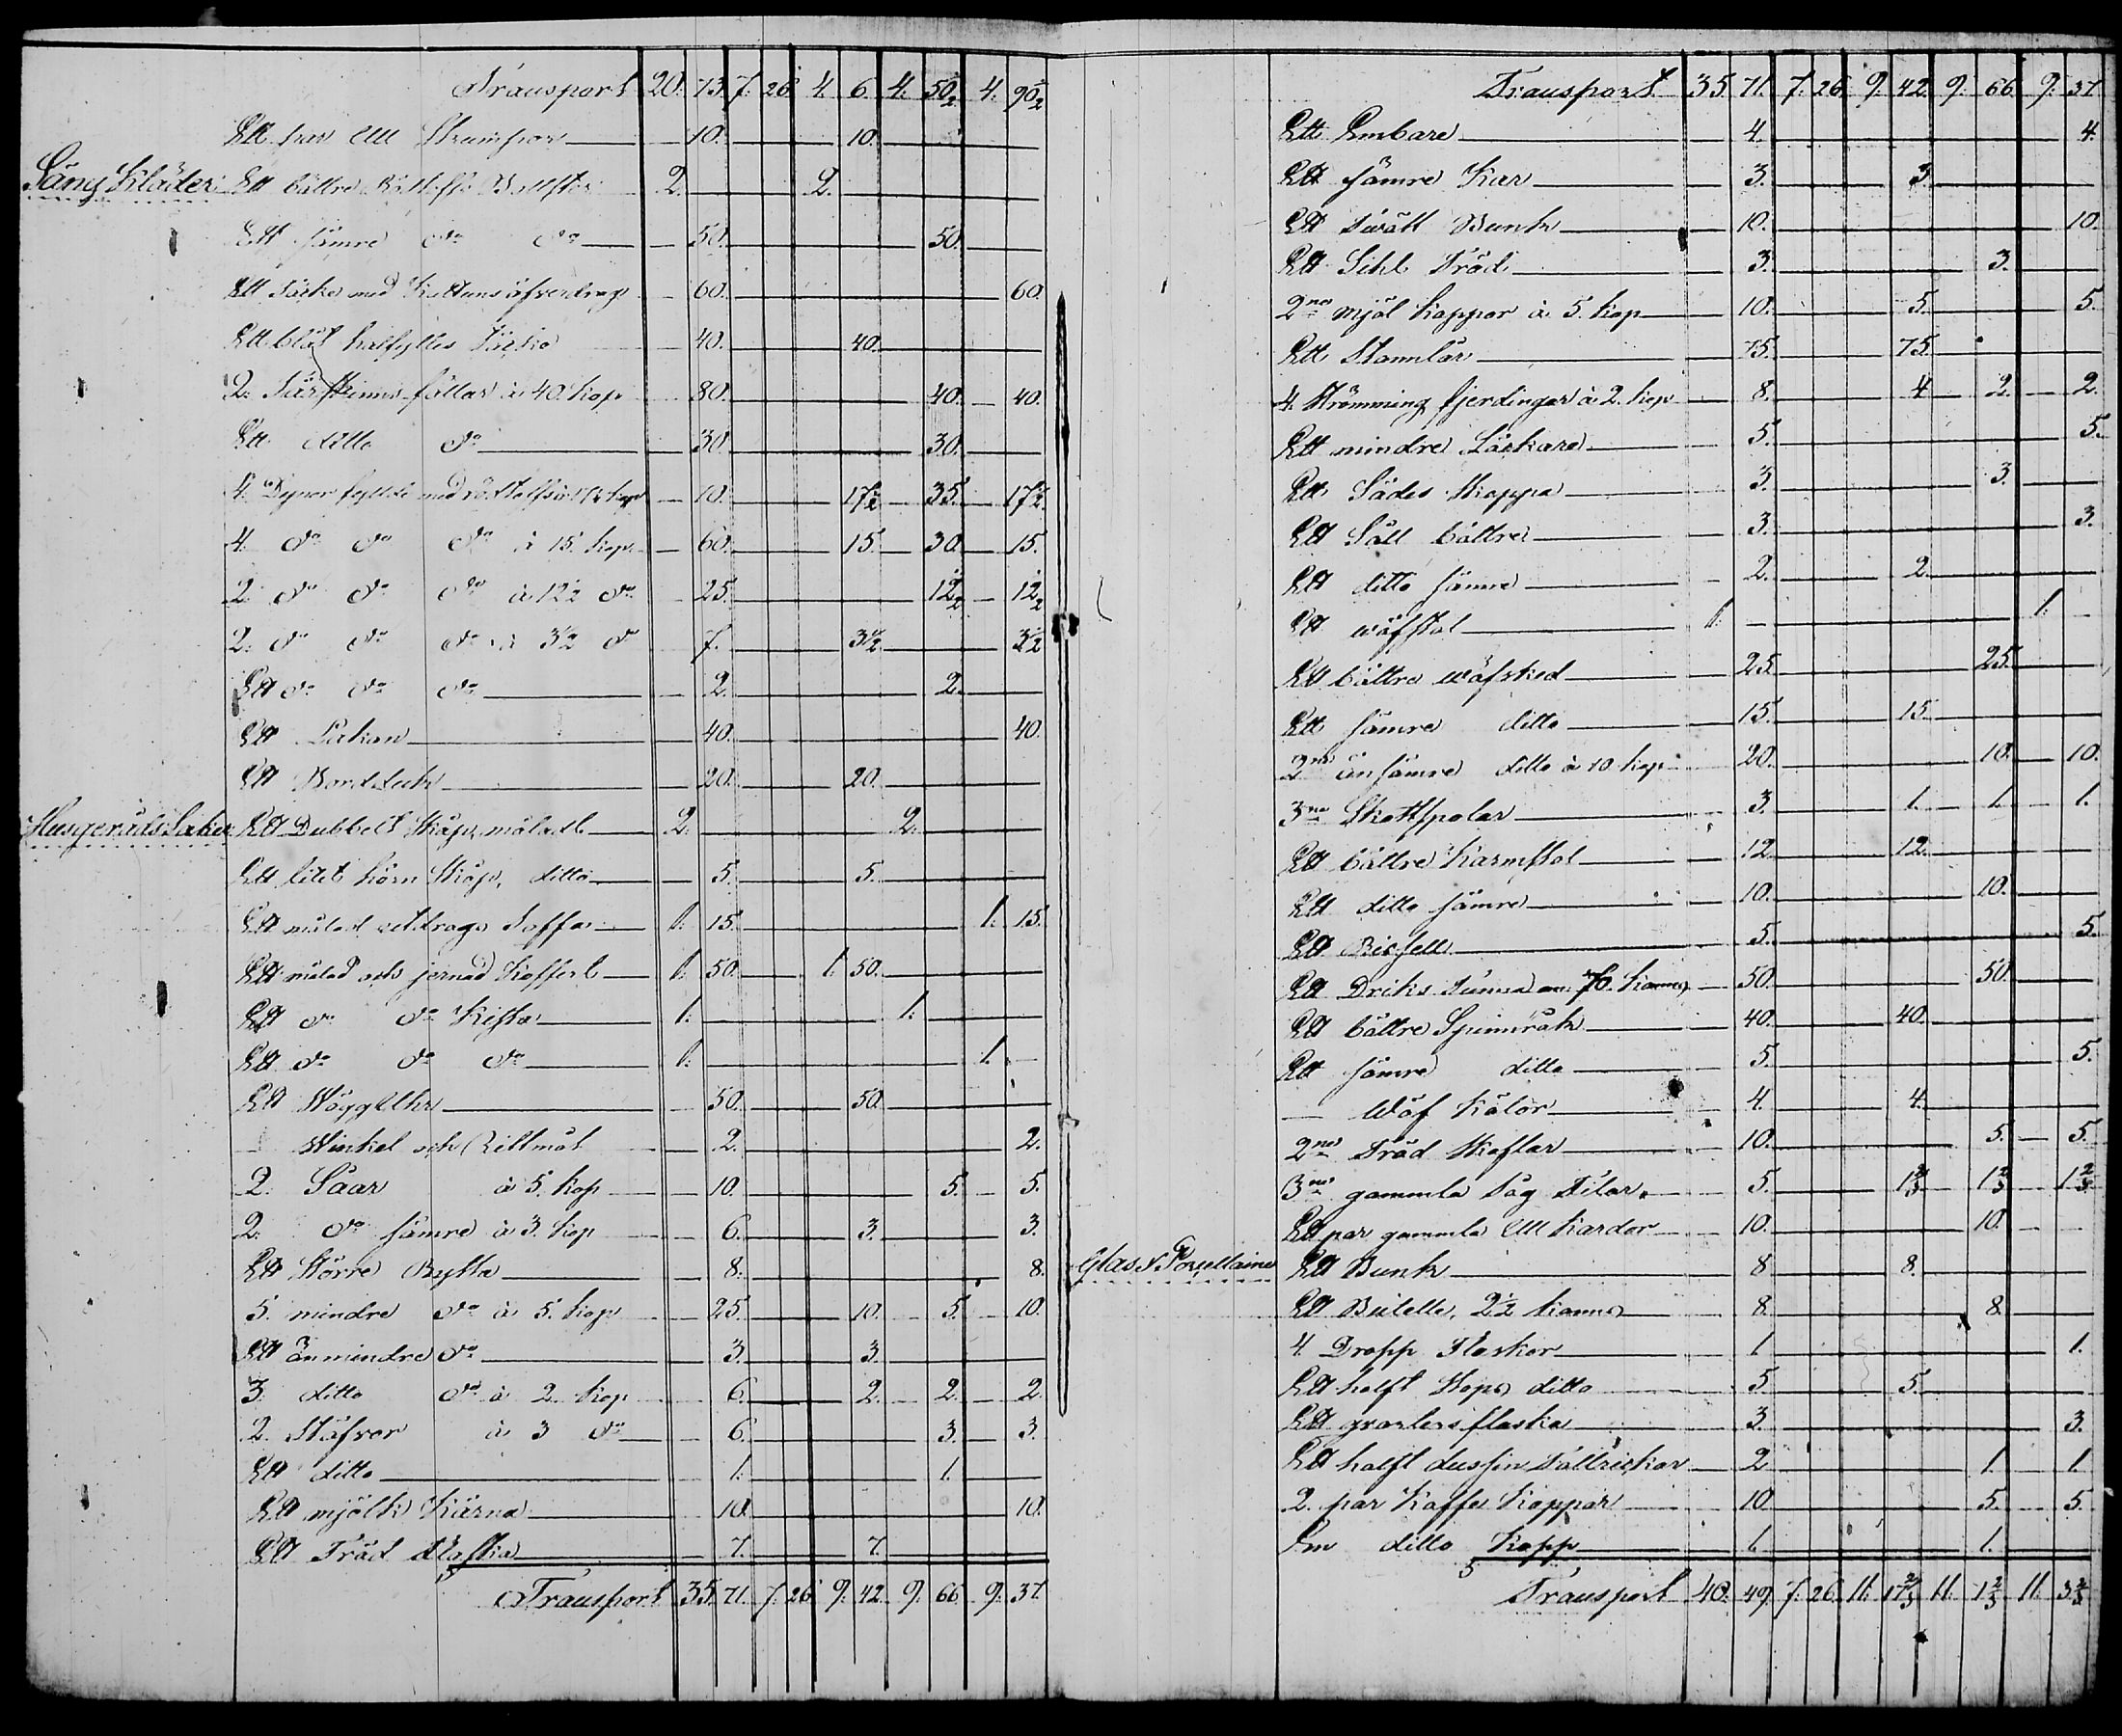 Transport 20. 73. 7. 26 4. 6. 4. 50½ 4. 90½
Ett par Ull Strumpor 10. 10.
Säng Kläder Ett bättre Bolster 2. 2.
Ett sämre do do 50. 50.
Ett Täcke med Kattuns öfverdrag 60. 60.
Ett blåt halfylles Täcke 40. 40.
2. Fårskinns fällar à 40 kop 80. 40. 40.
Ett ditto do 30. 30.
4. Dynor fyllde med 10. 17½ 35. 17½
4. do do do à 15 kop. 60. 15. 30. 15.
2. do do do à 12½ do 25. 12½ 12½
2. do do do à 3½ do 7. 3½ 3½
Ett do do do 2. 2.
Ett Lakan 40. 40.
Ett Bordduk 20. 20.
Husgeråds Saker Ett Dubbelt Skåp, måladt 2. 2.
Ett litet hörn Skåp, ditto 5. 5.
Ett målad utdrags Soffa 1. 15. 1. 15.
Ett målad och jernad Koffert 1. 50. 1. 50.
Ett do do Kista 1. 1.
Ett do do do 1. 1.
Ett Väggelhr 50. 50.
Winkel och 2. 2.
2. Såar à 5. kop 10. 5. 5.
2. do sämre à 3. kop 6. 3. 3.
Ett Större Bytta 8. 8.
5. mindre do à 5. kop 25. 10. 5. 10.
Ett än mindre do 3. 3.
3. ditto do à 2 kop 6. 2. 2. 2.
2. Stäfvor à 3 do 6. 3. 3.
Ett ditto 1. 1.
Ett mjölk Kärna 10. 10.
Ett Träd flaska 7. 7.
Transport 35. 71. 7. 26 9. 42. 9. 66 9. 37.
Transport 35. 71. 7. 26. 9. 42. 9. 66. 9. 37
Ett Embare 4. 4.
Ett sämre Kar 3. 3.
Ett Tvätt Bunk 10. 10.
Ett Sihl Träd 3. 3.
2ne mjöl Koppor à 5. kop 10. 5. 5.
Ett 75. 75.
4. Strömming fjerdingar à 2. kop 8. 4 2. 2.
Ett mindre 5. 5.
Ett Sädes Skoppa 3. 3.
Ett Såll bättre 3. 3.
Ett ditto sämre 2. 2.
Ett wäfstol 1. 1.
Ett bättre wäfsked 25. 25.
Ett sämre ditto 15. 15.
2ne än sämre ditto à 10 kop 20. 10. 10.
3ne Skottspolar 3. 1. 1. 1.
Ett bättre Karmstol 12. 12.
Ett ditto sämre 10. 10.
Ett 5. 5.
Ett Driks Tunna om 70 kannor 50. 50.
Ett bättre Spinnråk 40. 40.
Ett sämre ditto 5. 5.
Wäf 4. 4.
2ne Träd Skoflar 10. 5. 5.
3ne gammla Såg Filar 5. 1⅔ 1⅔ 1⅔
Ett par gammla Ull Kardor 10. 10.
Glas & Porsellainer Ett Bunk 8 8.
Ett Butelle, 2½ kannor 8 8
4. Dropp Flaskor 1 1.
Ett halft Stops ditto 5 5.
Ett qvarters flaska 3. 3.
Ett halft dussin Talltrickar 2 1. 1.
2. par Kaffe Koppar 10 5. 5.
Em ditto Kopp 1. 1.
Transport 40. 49 7. 26. 11. 17⅔ 11. 1⅔ 11. 3⅔